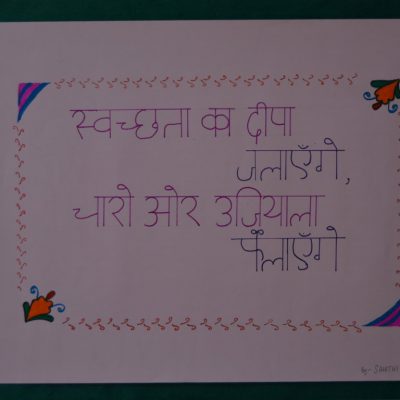 स्वच्छता का दीपा
जलाएँगे,
चारो ओर उजियाला
फैलाएँगे
By:-